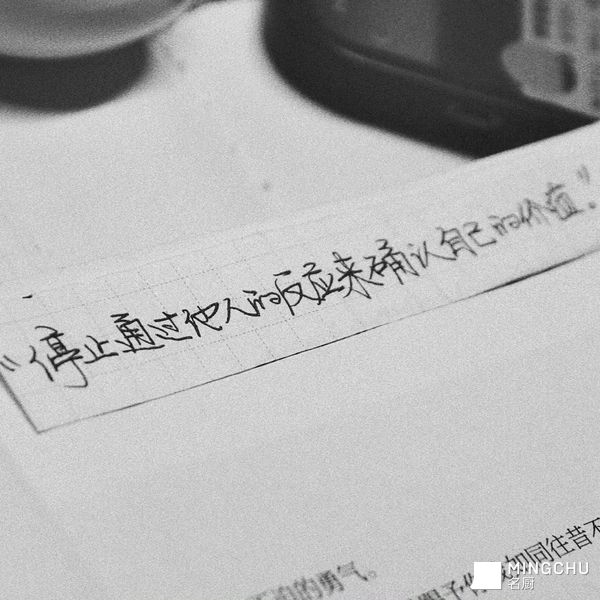 “停止通过他人的反应来确认自己的价值.”
的勇气。
如同往昔不
MINGCHU
名厨